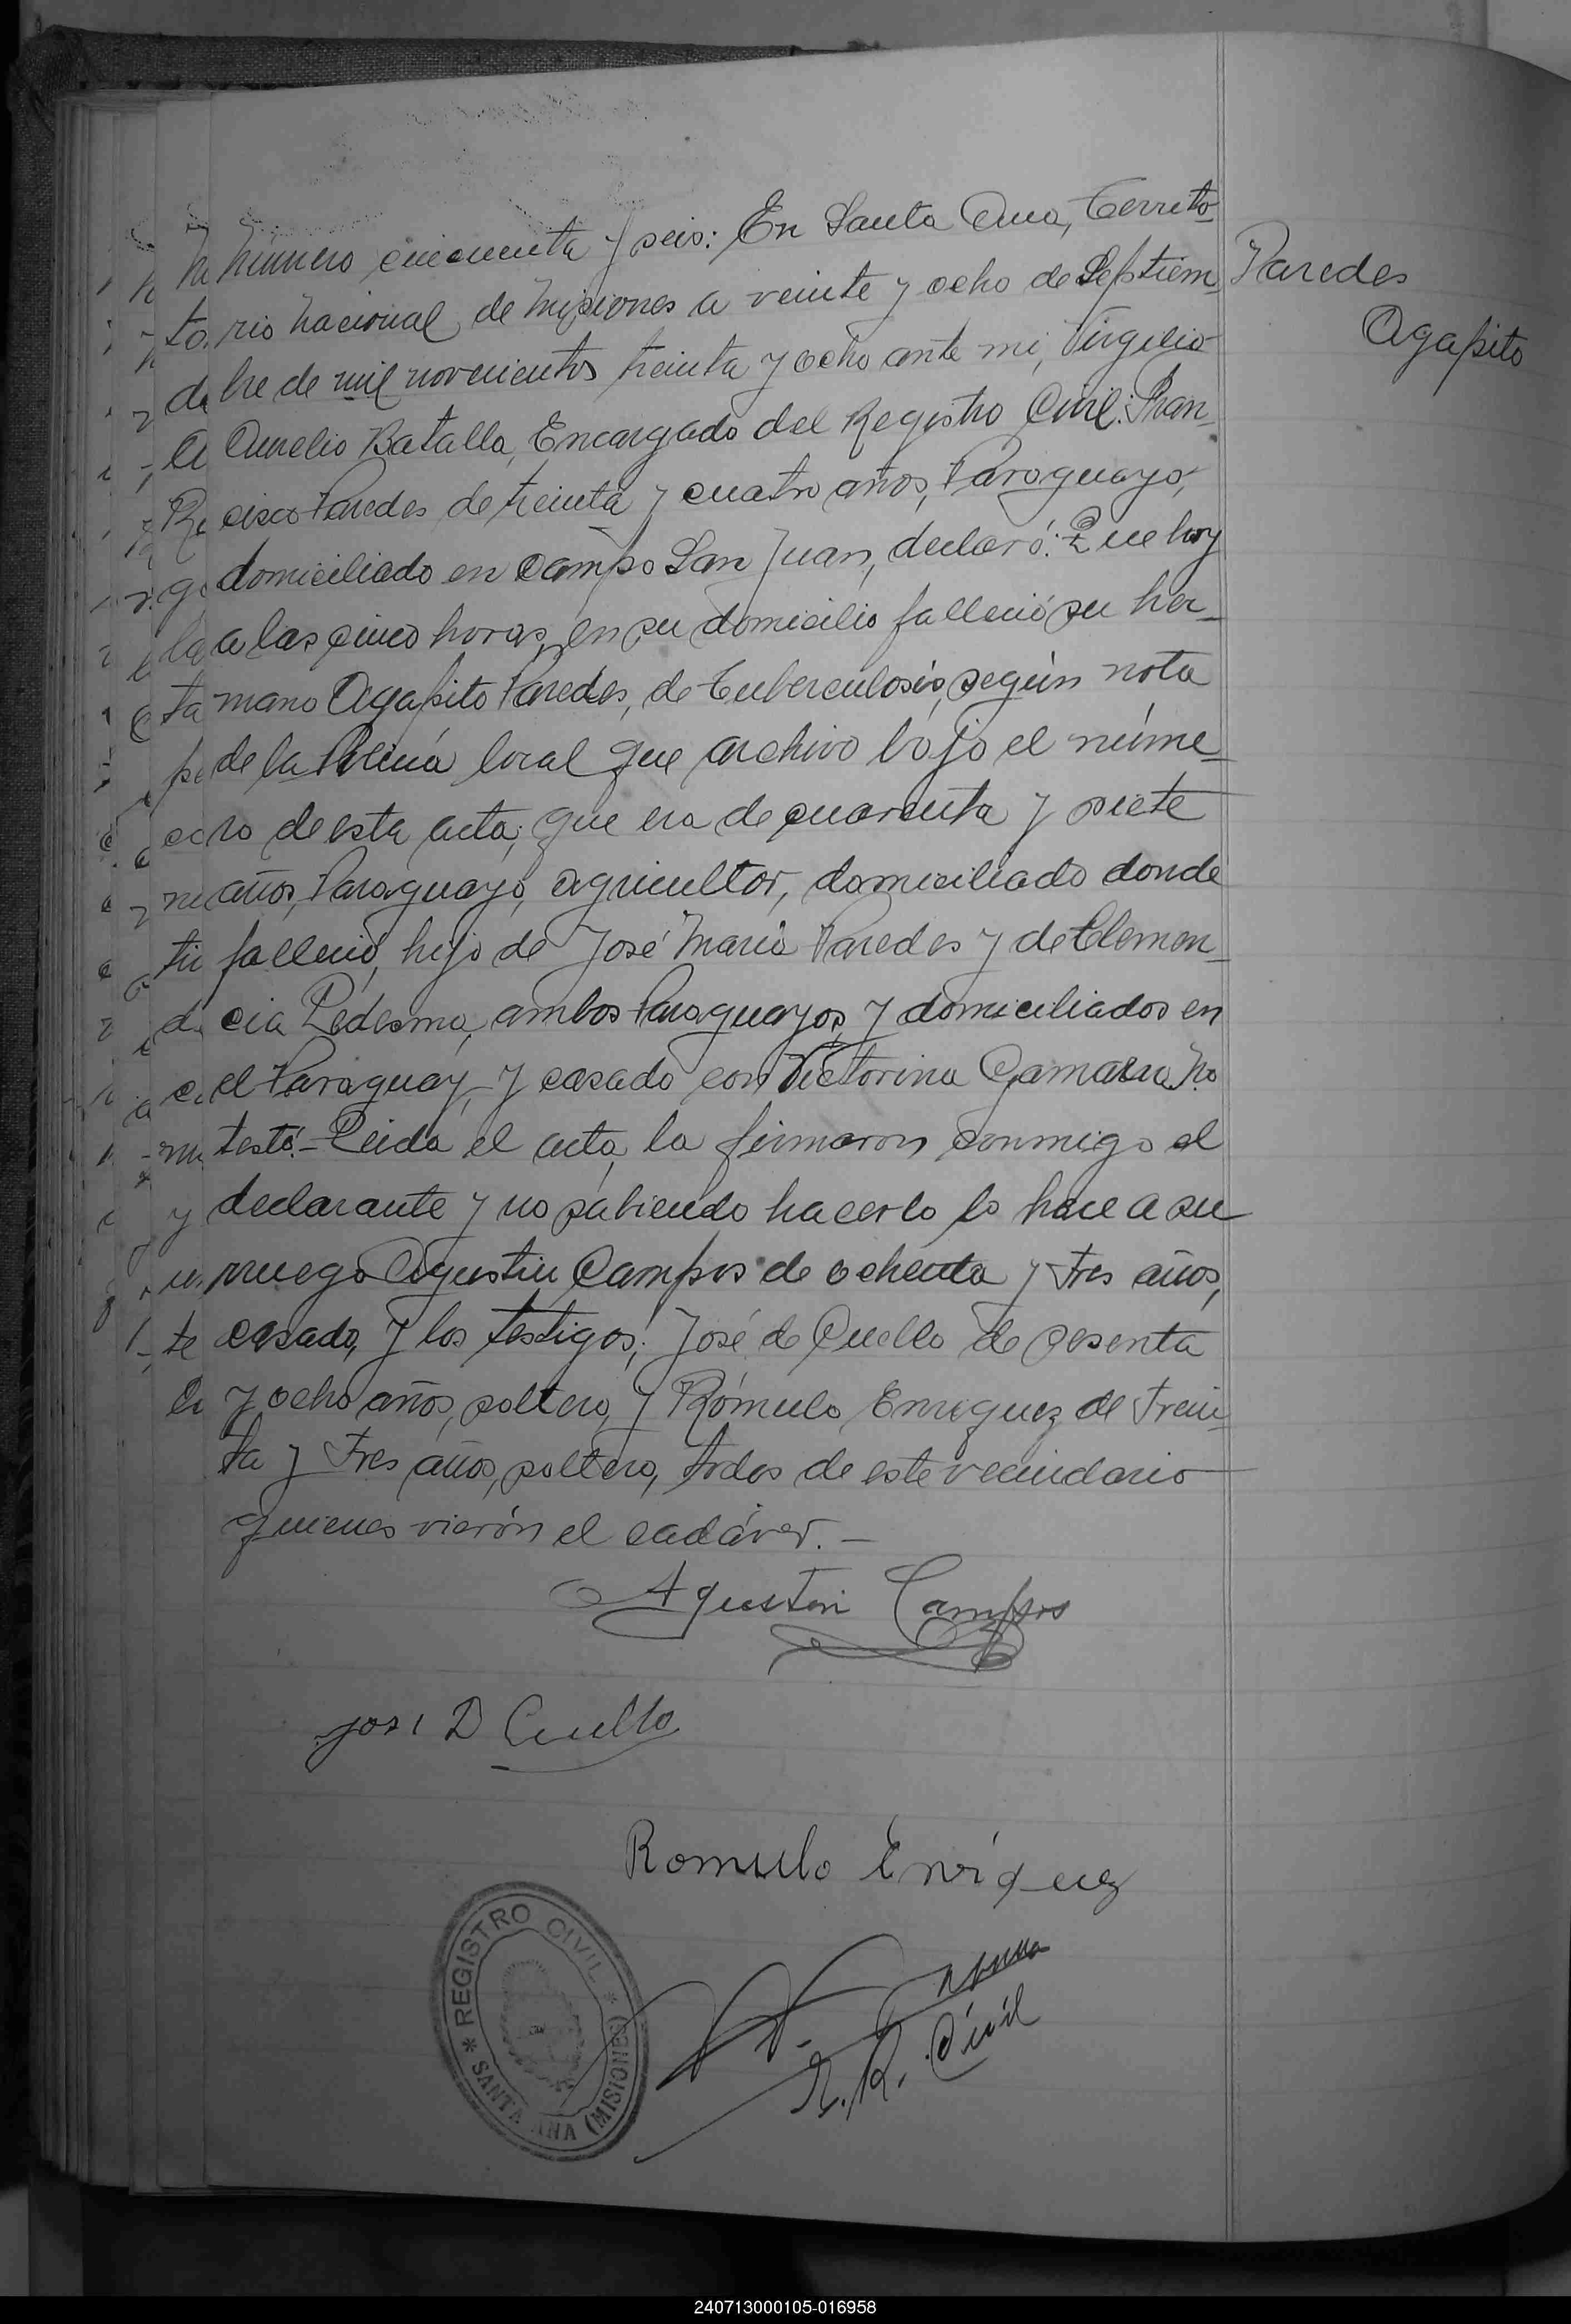 Número cincuenta y seis: En Santa Ana, Territo-
rio Nacional de Misiones a veinte y ocho de Septiem-
bre de mil novecientos treinta y ocho ante mi, Virgilio
Aurelio Batalla, Encargado del Registro Civil: Fran-
cisco Paredes de treinta y cuatro años, Paraguayo,
domiciliado en Campo San Juan, declaró: Que hoy
a las cinco horas, en su domicilio falleció su her-
mano Agapito Paredes, de tuberculosis, según nota
de la Policía local que archivo bajo el núme-
ro de esta acta; que era de cuarenta y siete
años, Paraguayo, agricultor, domiciliado donde
falleció, hijo de José María Paredes y de Clemen-
cia Ledesma, ambos Paraguayos, y domiciliados en
el Paraguay, y casado con Victorina Gamarra. No
testó.- Leida el acta, la firmaron conmigo el
declarante y no sabiendo hacerlo lo hace a su
ruego Agustin Campos de ochenta y tres años,
casado, y los testigos; José de Cuello de sesenta
y ocho años, soltero, y Rómulo Enriquez de trein-
ta y tres años, soltero, todos de este vecindario
quienes vierón el cadáver.-
Paredes
Agapito
Agustin Campos
José D Cuello
Romulo Enriquez
REGISTRO CIVIL
* SANTA ANA (MISIONES) *
R. Civil
240713000105-016958